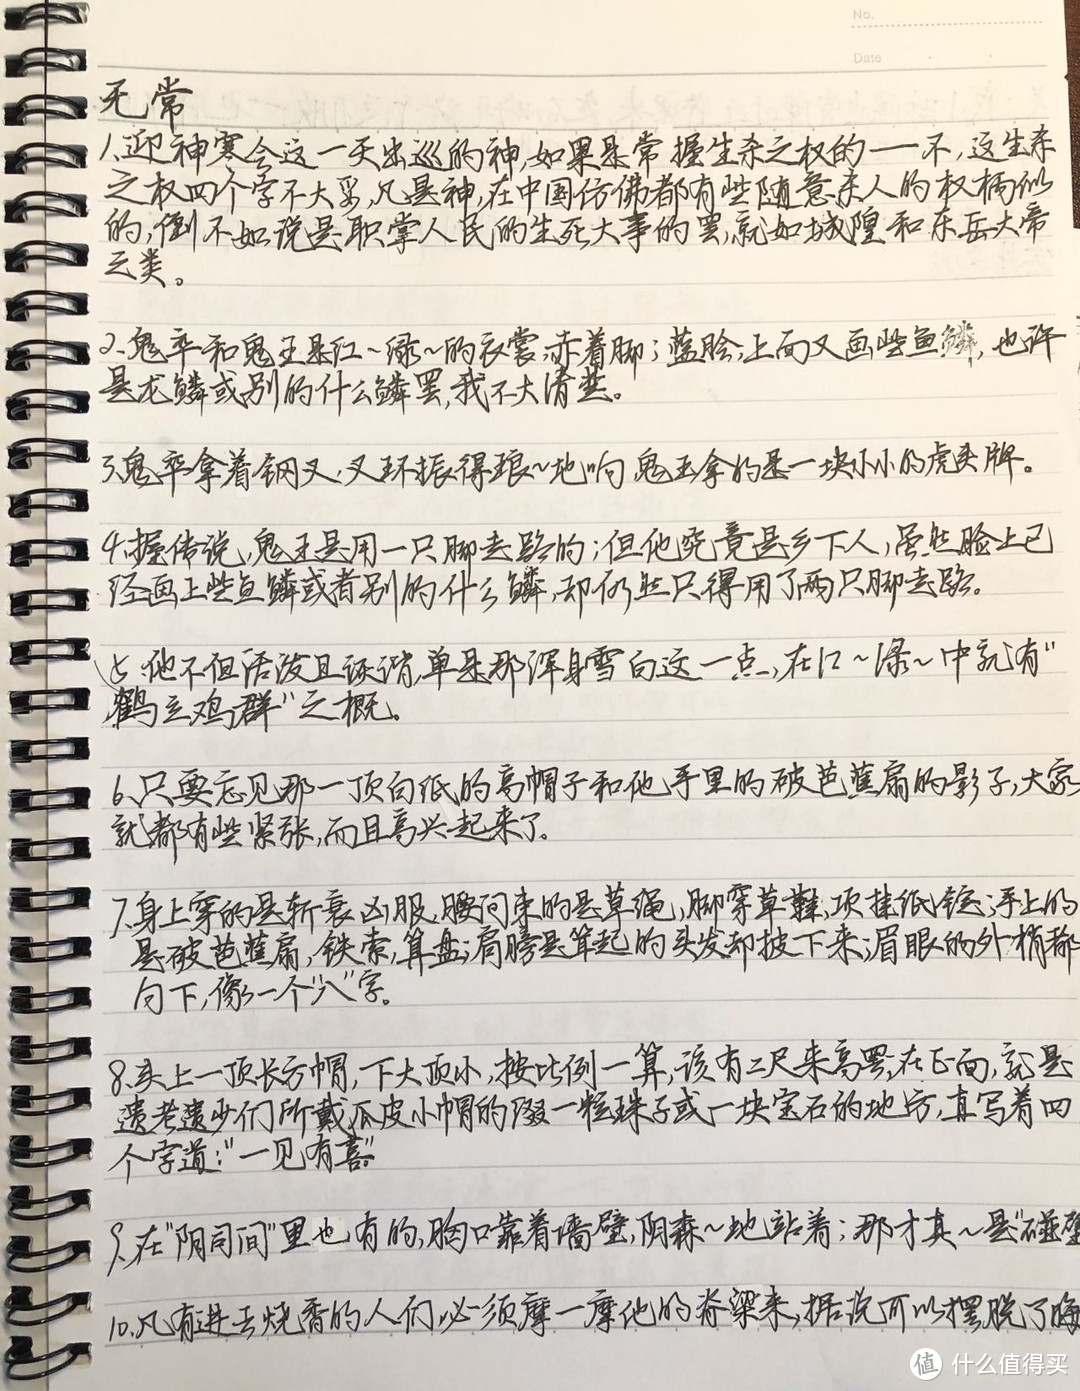 No.
Date
无常
1、迎神赛会这一天出巡的神,如果是掌握生杀之权的——不,这生杀
之权四个字不大妥,凡是神,在中国仿佛都有些随意杀人的权柄似
的,倒不如说是职掌人民的生死大事的罢,就如城隍和东岳大帝
之类。
2、鬼卒和鬼王是红~绿~的衣裳,赤着脚;蓝脸,上面又画些鱼鳞,也许
是龙鳞或别的什么鳞罢,我不大清楚。
3、鬼卒拿着钢叉,叉环振得琅~地响,鬼王拿的是一块小小的虎头牌。
4、据传说,鬼王是用一只脚走路的;但他究竟是乡下人,虽然脸上已
经画上些鱼鳞或者别的什么鳞,却仍然只得用了两只脚走路。
5、他不但活泼且诙谐,单是那浑身雪白这一点,在红~绿~中就有"
鹤立鸡群"之概。
6、只要忘见那一顶白纸的高帽子和他手里的破芭蕉扇的影子,大家
就都有些紧张,而且高兴起来了。
7、身上穿的是斩衰凶服,腰间束的是草绳,脚穿草鞋,项挂纸锭;手上的
是破芭蕉扇,铁索,算盘;肩膀是耸起的头发却披下来;眉眼的外梢都
向下,像一个"八"字。
8、头上一顶长方帽,下大顶小,按比例一算,该有二尺来高罢;在正面,就是
遗老遗少们所戴瓜皮小帽的缀一粒珠子或一块宝石的地方,直写着四
个字道:"一见有喜"
9、在"阴司间"里也有的,胸口靠着墙壁,阴森~地站着;那才真~是"碰壁
10、凡有进去烧香的人们必须摩一摩他的脊梁来,据说可以摆脱了晦
值 什么值得买